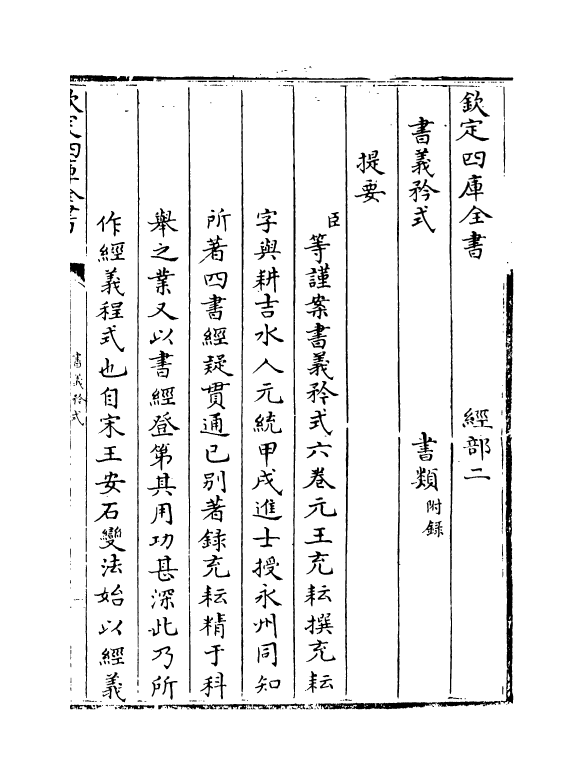 欽定四庫全書　經部二
書義矜式　書類附録
提要
臣等謹案書義矜式六卷元王充耘撰充耘
字與耕吉水人元統甲戌進士授永州同知
所著四書經疑貫通已别著録充耘精于科
舉之業又以書經登第其用功甚深此乃所
作經義程式也自宋王安石變法始以經義
欽定四庫全書
書義矜式